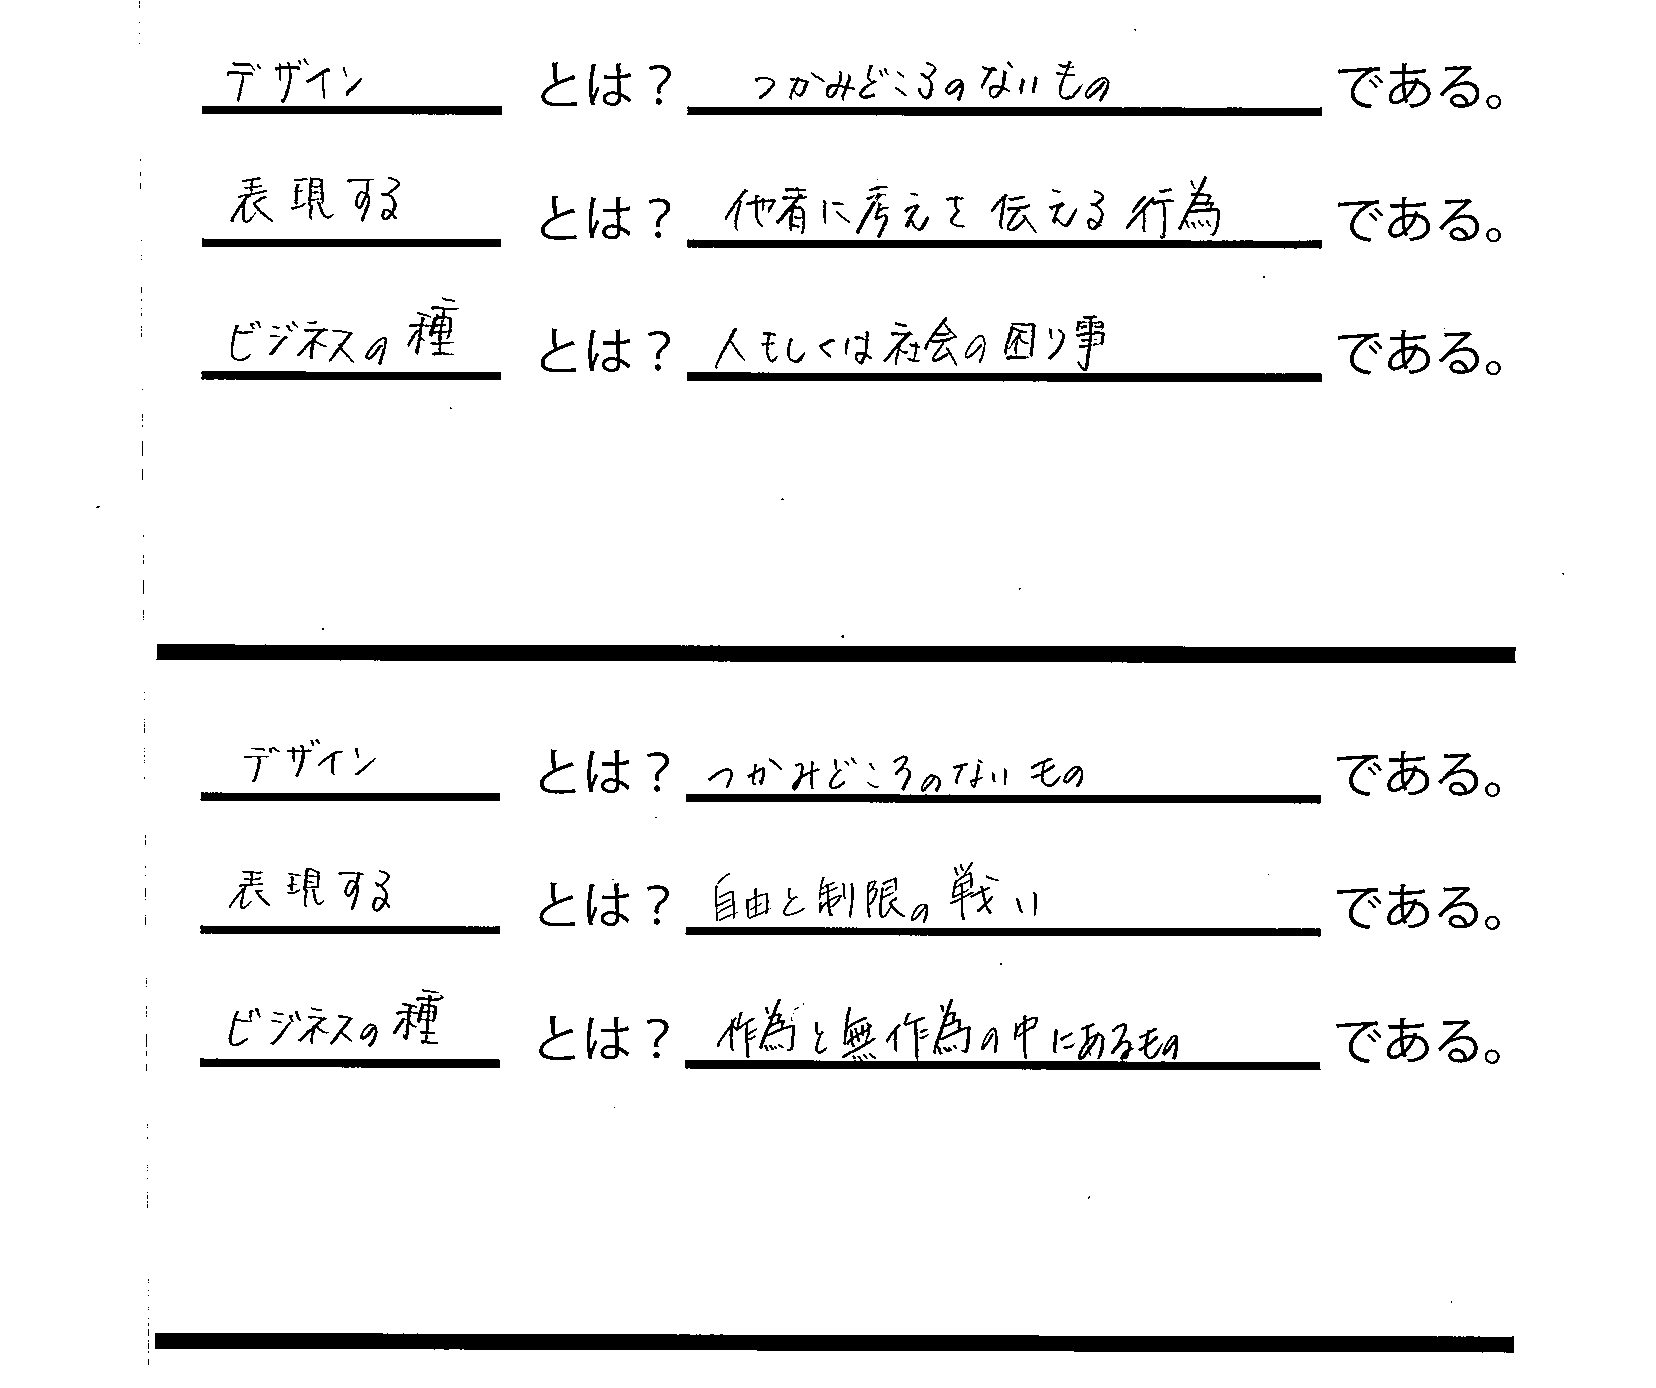 デザイン とは? つかみどころのないもの である。
表現する とは? 他者に考えを伝える行為 である。
ビジネスの種 とは? 人もしくは社会の困り事 である。
デザイン とは? つかみどころのないもの である。
表現する とは? 自由と制限の戦い である。
ビジネスの種 とは? 作為と無作為の中にあるもの である。